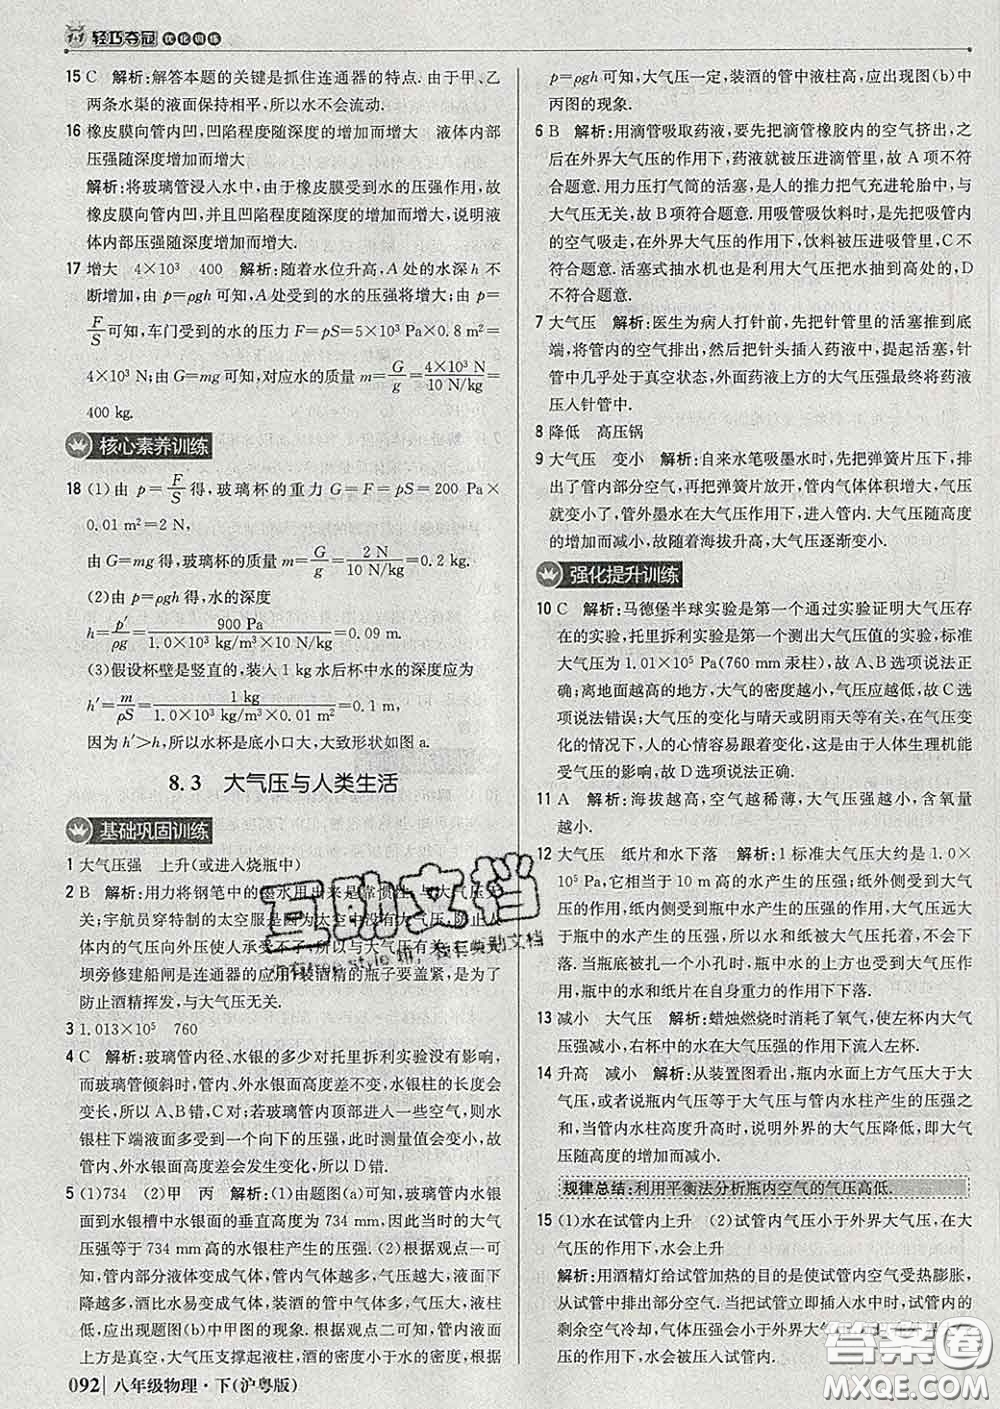 1+1 轻巧夺冠 优化训练
15 C 解析:解答本题的关键是抓住连通器的特点. 由于甲、乙
两条水渠的液面保持相平,所以水不会流动.
16 橡皮膜向管内凹,凹陷程度随深度的增加而增大 液体内部
压强随深度增加而增大
解析:将玻璃管浸入水中,由于橡皮膜受到水的压强作用,故
橡皮膜向管内凹,并且凹陷程度随深度的增加而增大,说明液
体内部压强随深度增加而增大.
17 增大 4×10³ 400 解析:随着水位升高,A 处的水深 h 不
断增加,由 p=ρgh 可知,A 处受到的水的压强将增大;由 p=
F/S 可知,车门受到的水的压力 F=pS=5×10³ Pa×0.8 m²=
4×10³ N;由 G=mg 可知,对应水的质量 m=G/g=4×10³ N/10 N/kg=
400 kg.
核心素养训练
18 (1)由 p=F/S 得,玻璃杯的重力 G=F=pS=200 Pa×
0.01 m²=2 N,
由 G=mg 得,玻璃杯的质量 m=G/g=2 N/10 N/kg=0.2 kg.
(2)由 p=ρgh 得,水的深度
h=p′/ρg=900 Pa/1.0×10³ kg/m³×10 N/kg=0.09 m.
(3)假设杯壁是竖直的,装入 1 kg 水后杯中水的深度应为
h′=m/ρS=1 kg/1.0×10³ kg/m³×0.01 m²=0.1 m,
因为 h′>h,所以水杯是底小口大,大致形状如图 a.
8.3 大气压与人类生活
基础巩固训练
1 大气压强 上升(或进入烧瓶中)
2 B 解析:用力将钢笔中的墨水甩出来是靠惯性,与大气压无
关;宇航员穿特制的太空服是因为太空中没有大气压,防止人
体内的气压向外压使人承受不了,所以与大气压有关;
坝旁修建船闸是连通器的应用;装酒精的瓶子要盖紧,是为了
防止酒精挥发,与大气压无关.
3 1.013×10⁵ 760
4 C 解析:玻璃管内径、水银的多少对托里拆利实验没有影响,
而玻璃管倾斜时,管内、外水银面高度差不变,水银柱的长度
变大,所以 A、B 错,C 对;若玻璃管内顶部进入一些空气,则水
银柱下端液面多受到一个向下的压强,此时测量值会变小,故
管内、外水银面高度差会发生变化,所以 D 错.
5 (1)734 (2)甲 丙 解析:(1)由题图(a)可知,玻璃管内水银
面到水银槽中水银面的垂直高度为 734 mm,因此当地的大
气压强等于 734 mm 高的水银柱产生的压强. (2)根据观点一可
知,管内部分液体变成气体,管内气体越多,气压越大,液面下
降越多,已知酒变成气体多,装酒的管中气体多,气压大,液面
下降多,应出现题图(b)中甲图的现象. 根据观点二可知,管内
上方是真空,大气压支撑起液柱,酒的密度小于水的密度,由
092 八年级物理·下(沪粤版)
p=ρgh 可知,大气压一定,装酒的管中液柱高,应出现图(b)中
丙图的现象.
6 B 解析:用滴管吸取药液,要先把滴管橡胶内的空气挤出,之
后在外界大气压的作用下,药液就被压进滴管里,故 A 项不符
合题意. 用力压打气筒的活塞,是人的推力把气充进轮胎中,与
大气压无关,故 B 项符合题意. 用吸管吸饮料时,是先把吸管内
的空气吸走,在外界大气压的作用下,饮料被压进吸管里,C 项
不符合题意. 活塞式抽水机也是利用大气压把水抽到高处的,D
不符合题意.
7 大气压 解析:医生为病人打针前,先把针管里的活塞推到底
端,将管内的空气排出,然后把针头插入药液中,提起活塞,针
管中几乎处于真空状态,外面药液上方的大气压强最终将药液
压入针管中.
8 降低 高压锅
9 大气压 变小 解析:自来水笔吸墨水时,先把弹簧片压下,排
出了管内部分空气,再把弹簧片放开,管内气体体积增大,气压
就变小了,管外墨水在大气压的作用下,进入管内. 大气压随高度
的增加而减小,故随着海拔升高,大气压逐渐变小.
强化提升训练
10 C 解析:马德堡半球实验是第一个通过实验证明大气压存
在的实验,托里拆利实验是第一个测出大气压值的实验,标准
大气压为 1.01×10⁵ Pa(760 mm 汞柱),故 A、B 选项说法正
确;离地面越高的地方,大气的密度越小,气压应越低,故 C 选
项说法错误;大气压的变化与晴天或阴雨天等有关,在气压变
化的情况下,人就会更容易跟着变化,这是由于人体生理机能
受气压的影响,故 D 选项说法正确.
11 A 解析:海拔越高,空气越稀薄,大气压强越小,含氧量
越小.
12 大气压 纸片和水下落 解析:1 标准大气压大约是 1.0×
10⁵ Pa,它相当于 10 m 高的水产生的压强;纸外侧受到大气压
的作用,纸内侧受到水产生的压强的作用,大气压远大
于水产生的压强,所以纸片在大气压的作用下被托着,不会落
下. 当瓶底被扎一个小孔时,瓶中水的上方也受大气压的作用,瓶
中的水和纸片在自身重力的作用下下落.
13 减小 大气压 解析:蜡烛燃烧时消耗了氧气,使左杯内大气
压强减小,右杯中的水在大气压强的作用下流入左杯.
14 升高 减小 解析:从装置图看出,瓶内水面上方气压大于大
气压,或者说瓶内压强等于大气压与管内水柱产生的压强之
和,当管内水柱高度升高时,说明外界的大气压降低,即大气
压随高度的增加而减小.
规律总结:利用平衡法分析瓶内空气的气压高低.
15 (1)水在试管内上升 (2)试管内气压小于外界大气压,在大
气压的作用下,水会上升
解析:用酒精灯给试管加热的目的是使试管内空气受热膨胀,
从试管中排出部分空气. 当把试管立即插入水中时,试管内的
剩余空气冷却,气体压强会小于外界大气压,在外界大气
压的作用下
互助文档
答案圈
MXQE.COM